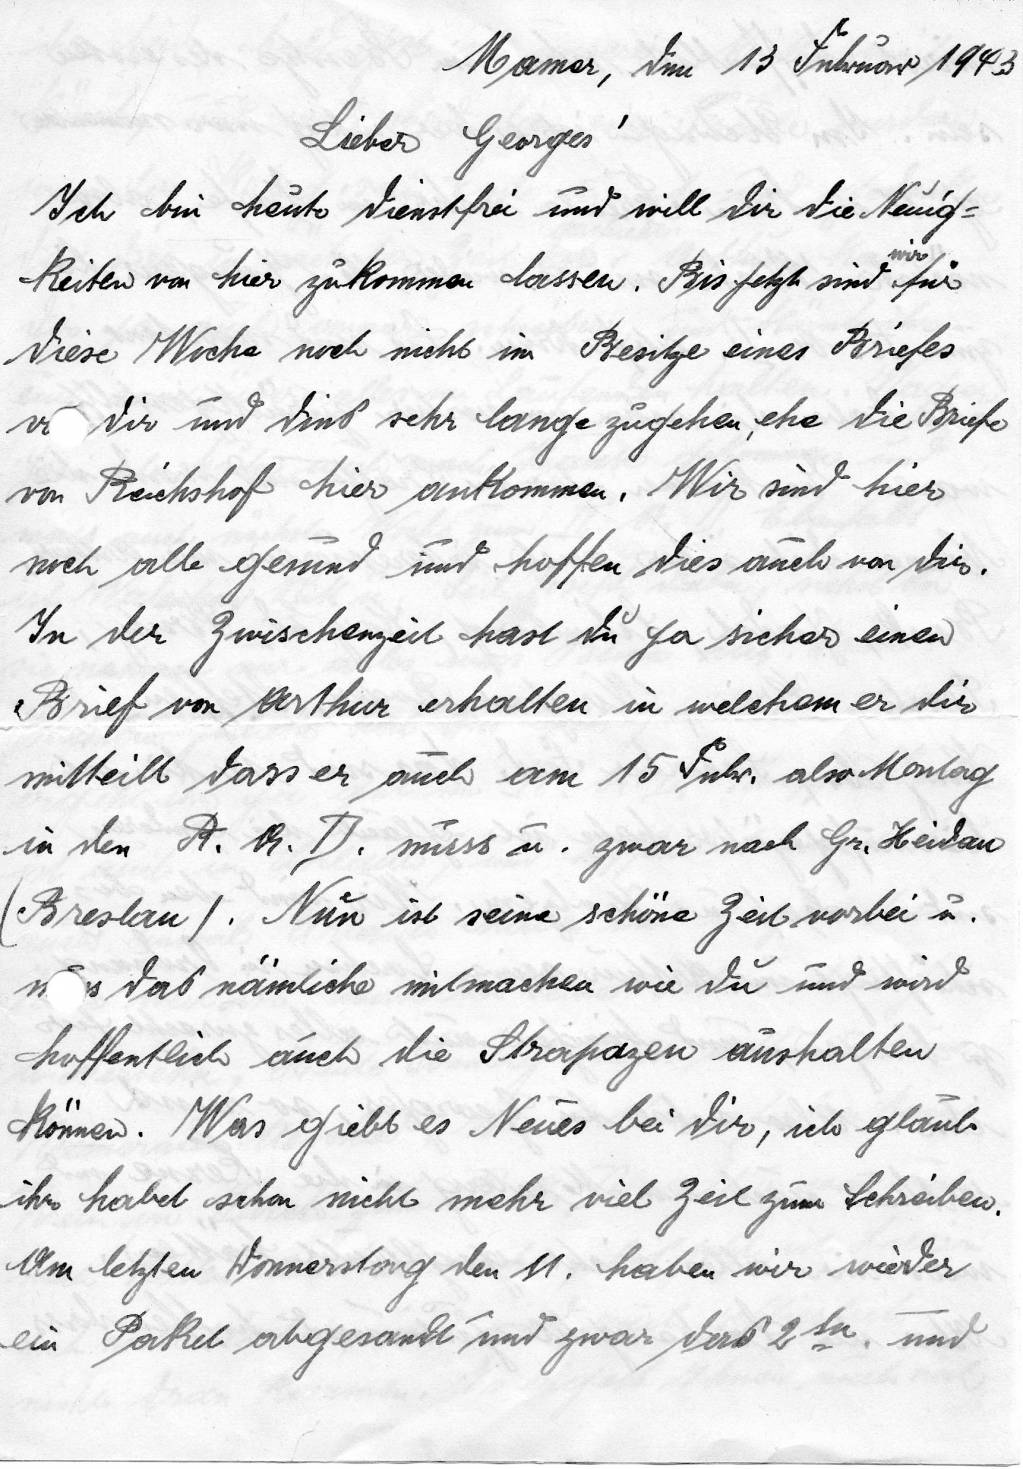 Mamer, den 13 Februar 1943
Lieber Georges!
Ich bin heute dienstfrei und will dir die Neuig=
keiten von hier zukommen lassen. Bis jetzt sind wir für
diese Woche noch nicht im Besitze eines Briefes
dir und sehr lange zugehen, ehe die Briefe
von Reichshof hier ankommen. Wir sind hier
noch alle gesund und hoffen dies auch von dir.
In der Zwischenzeit hast du ja sicher einen
Brief von Arthur erhalten in welchem er dir
mitteilt dass er auch am 15 Febr. also Montag
in den R. A. D. muss u. zwar nach Gr. Heidau
(Breslau). Nun ist seine schöne Zeit vorbei u.
das nämliche mitmachen wie du und wird
hoffentlich auch die Strapazen aushalten
können. Was giebt es Neues bei dir, ich glaub
ihr habet schon nicht mehr viel Zeit zum Schreiben.
Am letzten Donnerstag den 11. haben wir wieder
ein Paket abgesandt und zwar das 2te. und